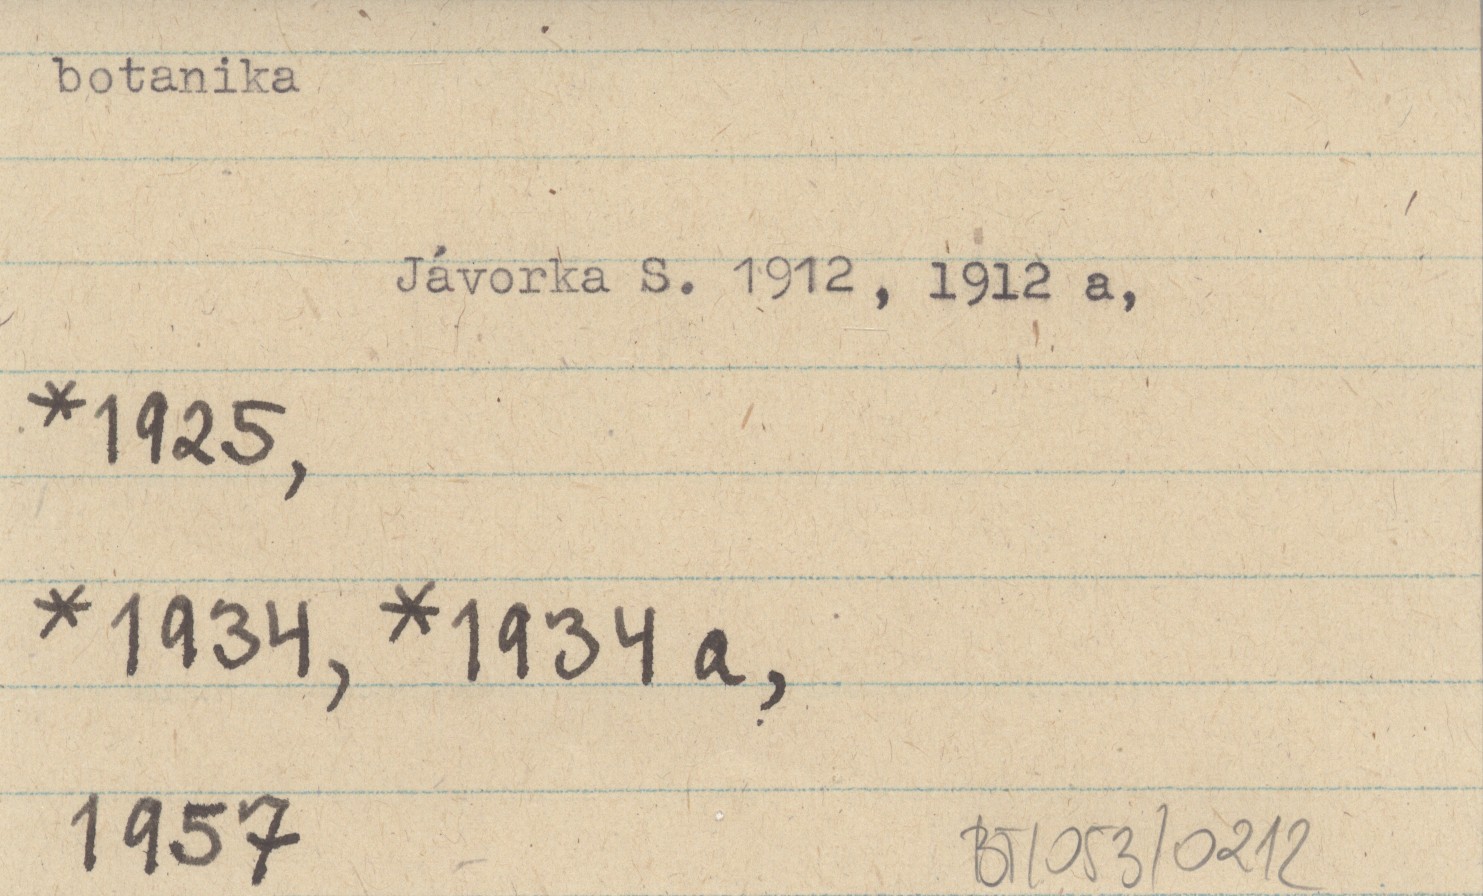 botanika
Jávorka S. 1912, 1912 a,
*1925,
*1934, *1934 a,
1957
BT/053/0212